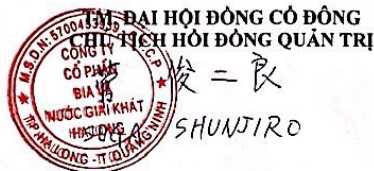 TM. ĐẠI HỘI ĐỒNG CỔ ĐÔNG
CHỦ TỊCH HỘI ĐỒNG QUẢN TRỊ
M.S.D.N: 5700453
C.P
CÔNG TY
CỔ PHẦN
BIA VÀ
NƯỚC GIẢI KHÁT
HẠ LONG
TP. HẠ LONG - T. QUẢNG NINH
俊二良
SHUNJIRO